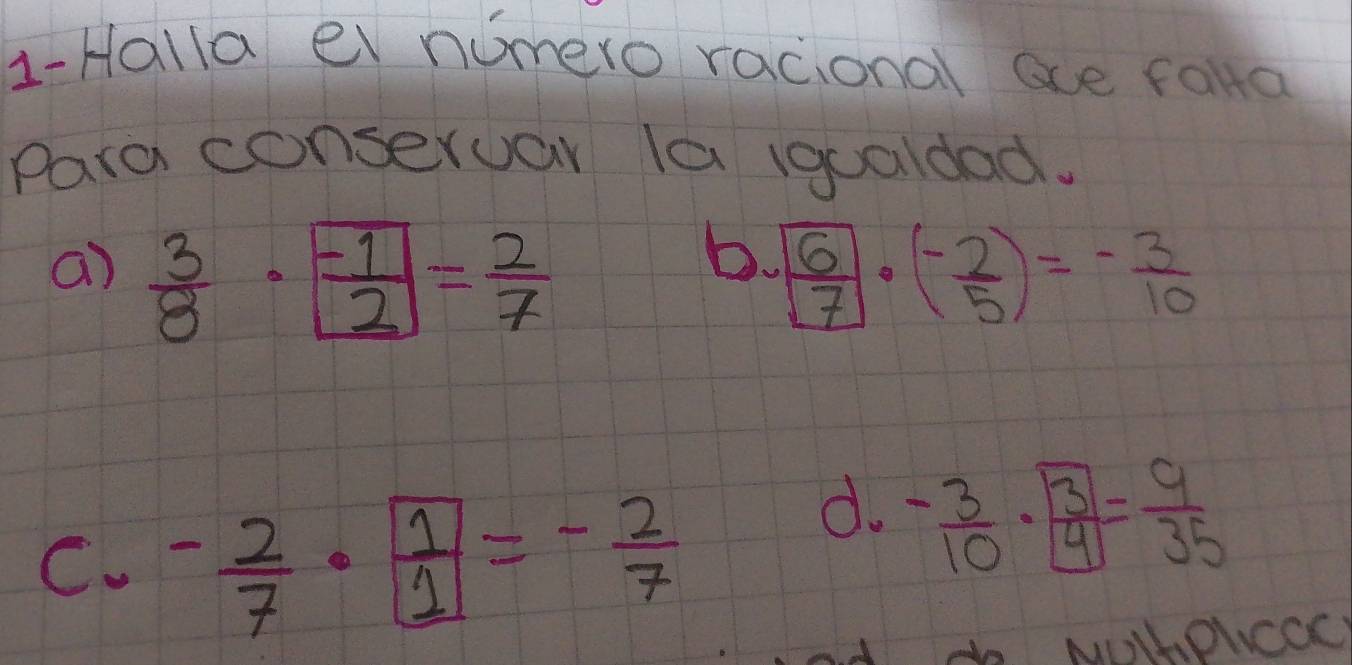 1-Halla el número racional Que falta
Para conservar la igualdad.
a) 3/8 · -1/2 = 2/7 b. 6/7 · (-2/5) = -3/10
c. -2/7 · 1/1 = -2/7 d. -3/10 · 3/4 = 9/35